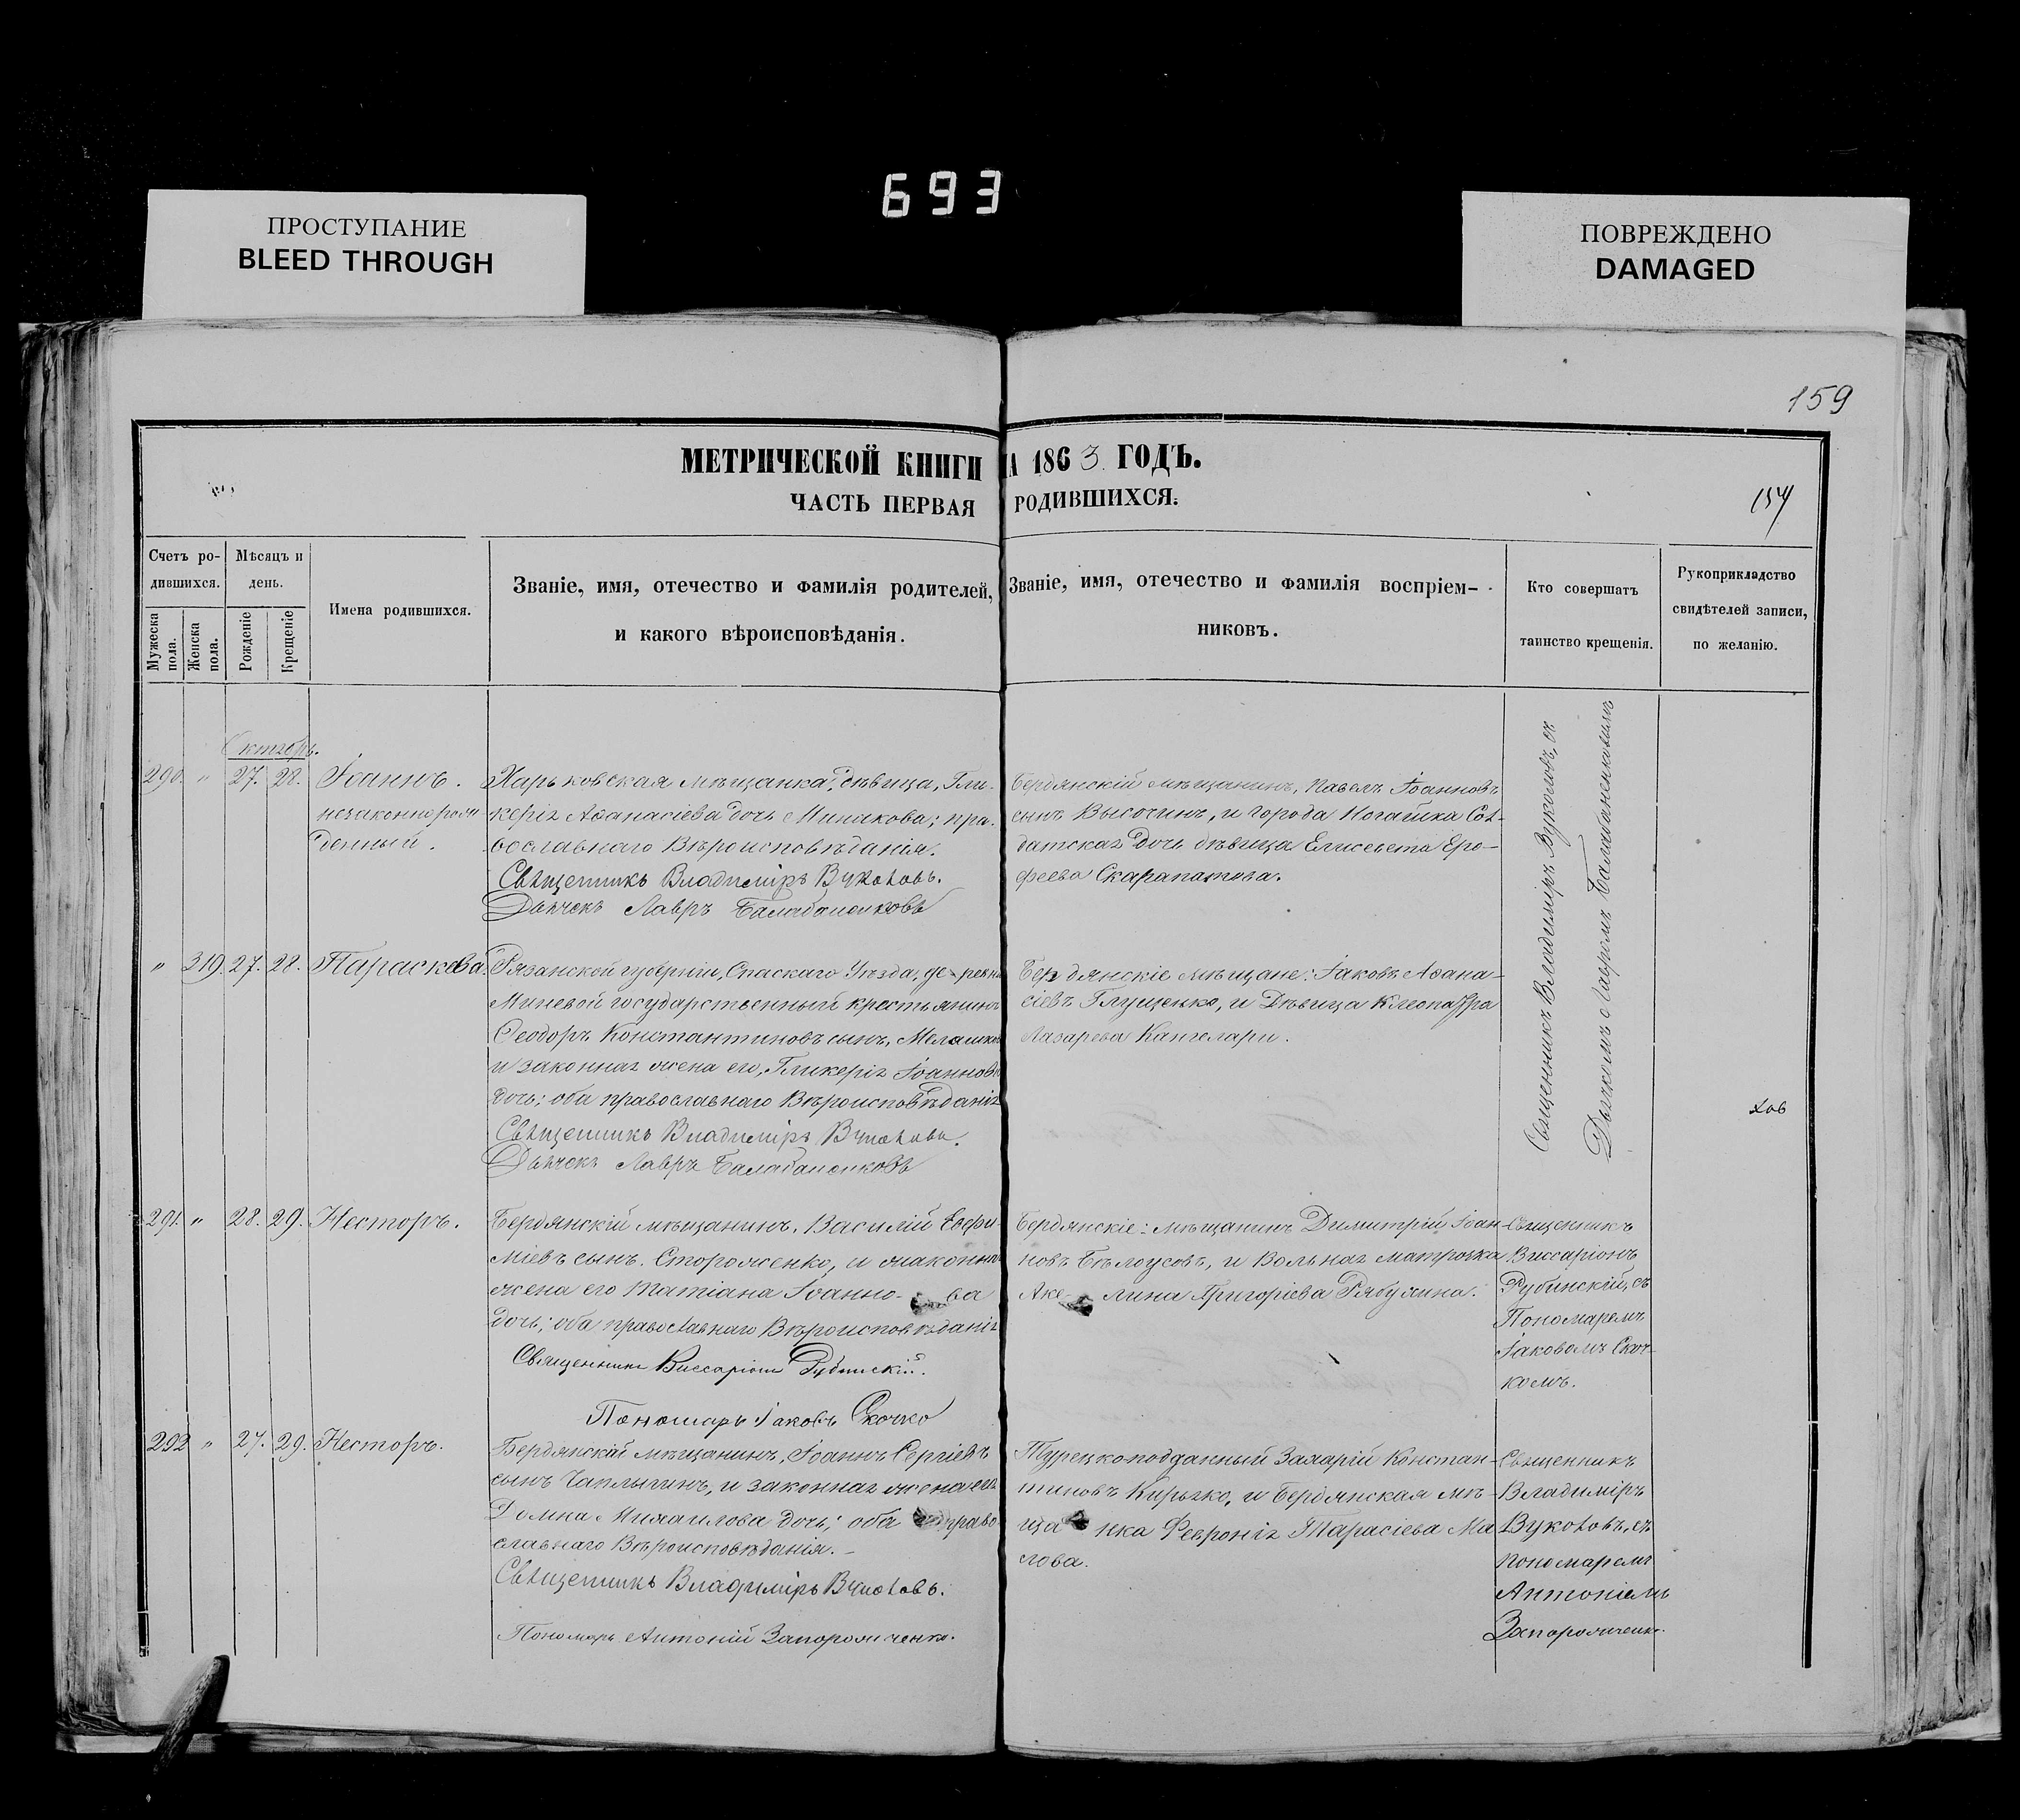 693
ПРОСТУПАНИЕ
BLEED THROUGH
ПОВРЕЖДЕНО
DAMAGED
159
МЕТРИЧЕСКОЙ КНИГИ
А 1863 ГОДЪ.
ЧАСТЬ ПЕРВАЯ
РОДИВШИХСЯ.
Счетъ ро-
дившихся.
Мужеска пола.
Женска пола.
Мѣсяцъ и
день.
Рожденіе
Крещеніе
Имена родившихся.
Званіе, имя, отечество и фамилія родителей,
и какого вѣроисповѣданія.
Званіе, имя, отечество и фамилія воспріем-
никовъ.
Кто совершатъ
таинство крещенія.
Рукоприкладство
свидѣтелей записи,
по желанію.
Октябрь.
290. " 27. 28. Іоаннъ.
незаконнорож-
денный.
Харьковская мѣщанка, дѣвица, Гли-
керія Аѳанасіева дочь Минакова; пра-
вославнаго Вѣроисповѣданія.
Священникъ Владиміръ Вуколовъ.
Дьячекъ Лавръ Балабаненковъ
Бердянскій мѣщанинъ, Павелъ Іоанновъ
сынъ Высочинъ, и города Ногайска Сол-
датская дочь дѣвица Елисавета Еро-
феева
Священникъ Владиміръ Вуколовъ, съ
Дьячкомъ Лавромъ Балабаненковымъ
" 319. 27. 28. Параскева.
Рязанской губерніи, Спаскаго Уѣзда, деревни
Миневой государственный крестьянинъ
Ѳеодоръ Константиновъ сынъ,
и законная жена его, Гликерія Іоаннова
дочь; оба православнаго Вѣроисповѣданія
Священникъ Владиміръ Вуколовъ.
Дьячекъ Лавръ Балабаненковъ
Бердянскіе мѣщане: Іаковъ Аѳана-
сіевъ Глущенко, и Дѣвица Клеопатра
Лазарева Кангелари.
291. " 28. 29. Несторъ.
Бердянскій мѣщанинъ, Василій Евфи-
міевъ сынъ Стороженко, и законная
жена его Татіана Іоанно- ва
дочь; оба православнаго Вѣроисповѣданія
Священникъ Виссаріонъ Рубинскій.
Пономарь Іаковъ Скочко
Бердянскіе: мѣщанинъ Димитрій Іоан-
новъ Бѣлоусовъ, и Вольная матрозка
Аке- лина Григоріева
Священникъ
Виссаріонъ
Рубинскій, съ
Пономаремъ
Іаковомъ Скоч-
комъ.
292 " 27. 29. Несторъ.
Бердянскій мѣщанинъ, Іоаннъ Сергіевъ
сынъ Чаплыгинъ, и законная жена его
Домна Михаилова дочь; оба право-
славнаго Вѣроисповѣданія.
Священникъ Владиміръ Вуколовъ.
Пономарь Антоній Запорожченко.
Турецкоподданный Захарій Констан-
тиновъ Кирьяко, и Бердянская мѣ-
ща нка Февронія Тарасіева Ма-
лова.
Священникъ
Владиміръ
Вуколовъ, съ
пономаремъ
Антоніемъ
Запорожченк.